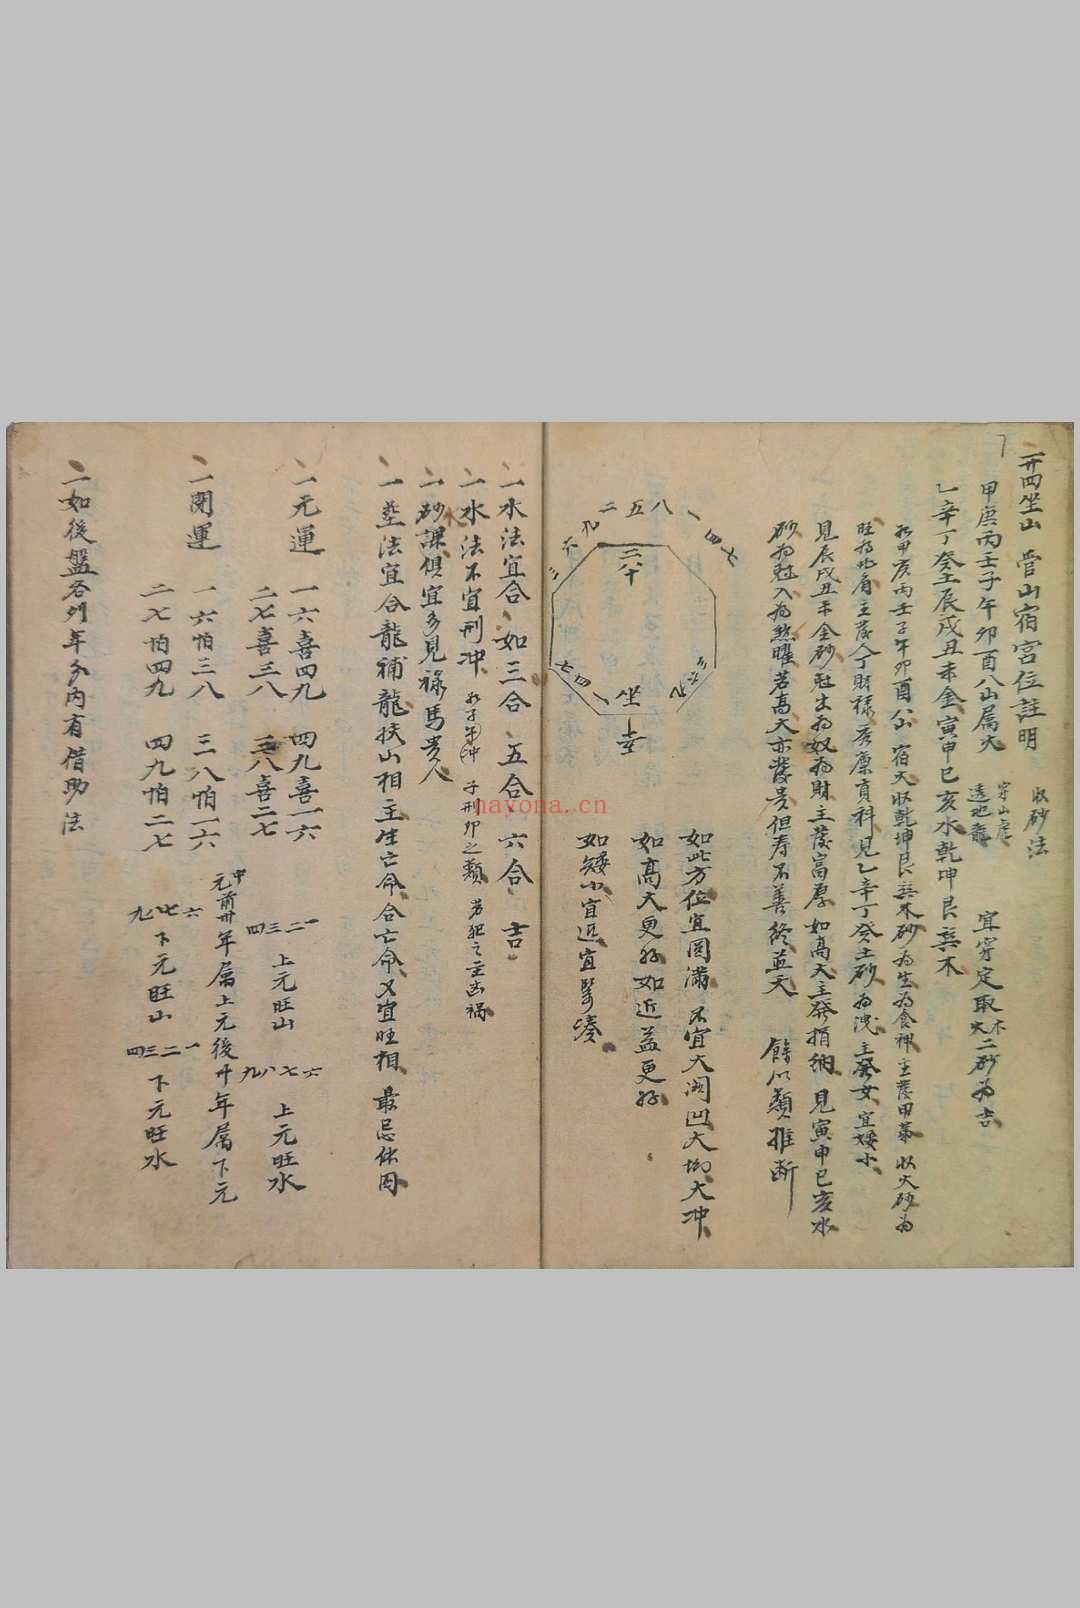 廿四坐山 管山宿宮位註明 收砂法
甲庚丙壬子午卯酉八山属火 穿山虎 透地龍 宜穿定取木火二砂為吉
乙辛丁癸土辰戌丑未金寅申巳亥水乾坤艮巽木
如甲庚丙壬子午卯酉八山 宿火收乾坤艮巽木砂為生為食神主發甲第 收火砂為
旺為比肩主發人丁財祿 見乙辛丁癸土砂為洩主發女宜矮小
見辰戌丑未金砂尅出為奴為財主發富厚如高大主發捐納 見寅申巳亥水
砂為尅入為煞曜若高大亦發貴但壽不善終並夭 餘以類推断
二五八 一四七
三六九
二八十
坐
七四一
如此方位宜圓滿 不宜大凹大坳大冲
如高大更好如近益更好
如矮小宜近宜緊湊
一水法宜合 如三合 五合 六合 吉
一水法不宜刑冲 如子午冲 子刑卯之類 若犯之主凶禍
一砂課俱宜多見祿馬貴人
一塟法宜合龍補龍扶山相主生亡命合亡命又宜旺相 最忌休囚
一元運 一六喜四九 四九喜一六
二七喜三八 三八喜二七 一二三四 上元旺山 六七八九 上元旺水
中元前卅年属上元後卅年属下元
一閉運 一六怕三八 三八怕一六
二七怕四九 四九怕二七 六七九 下元旺山 一二三四 下元旺水
一如後盤各列年分內有借助法
nayona.cn